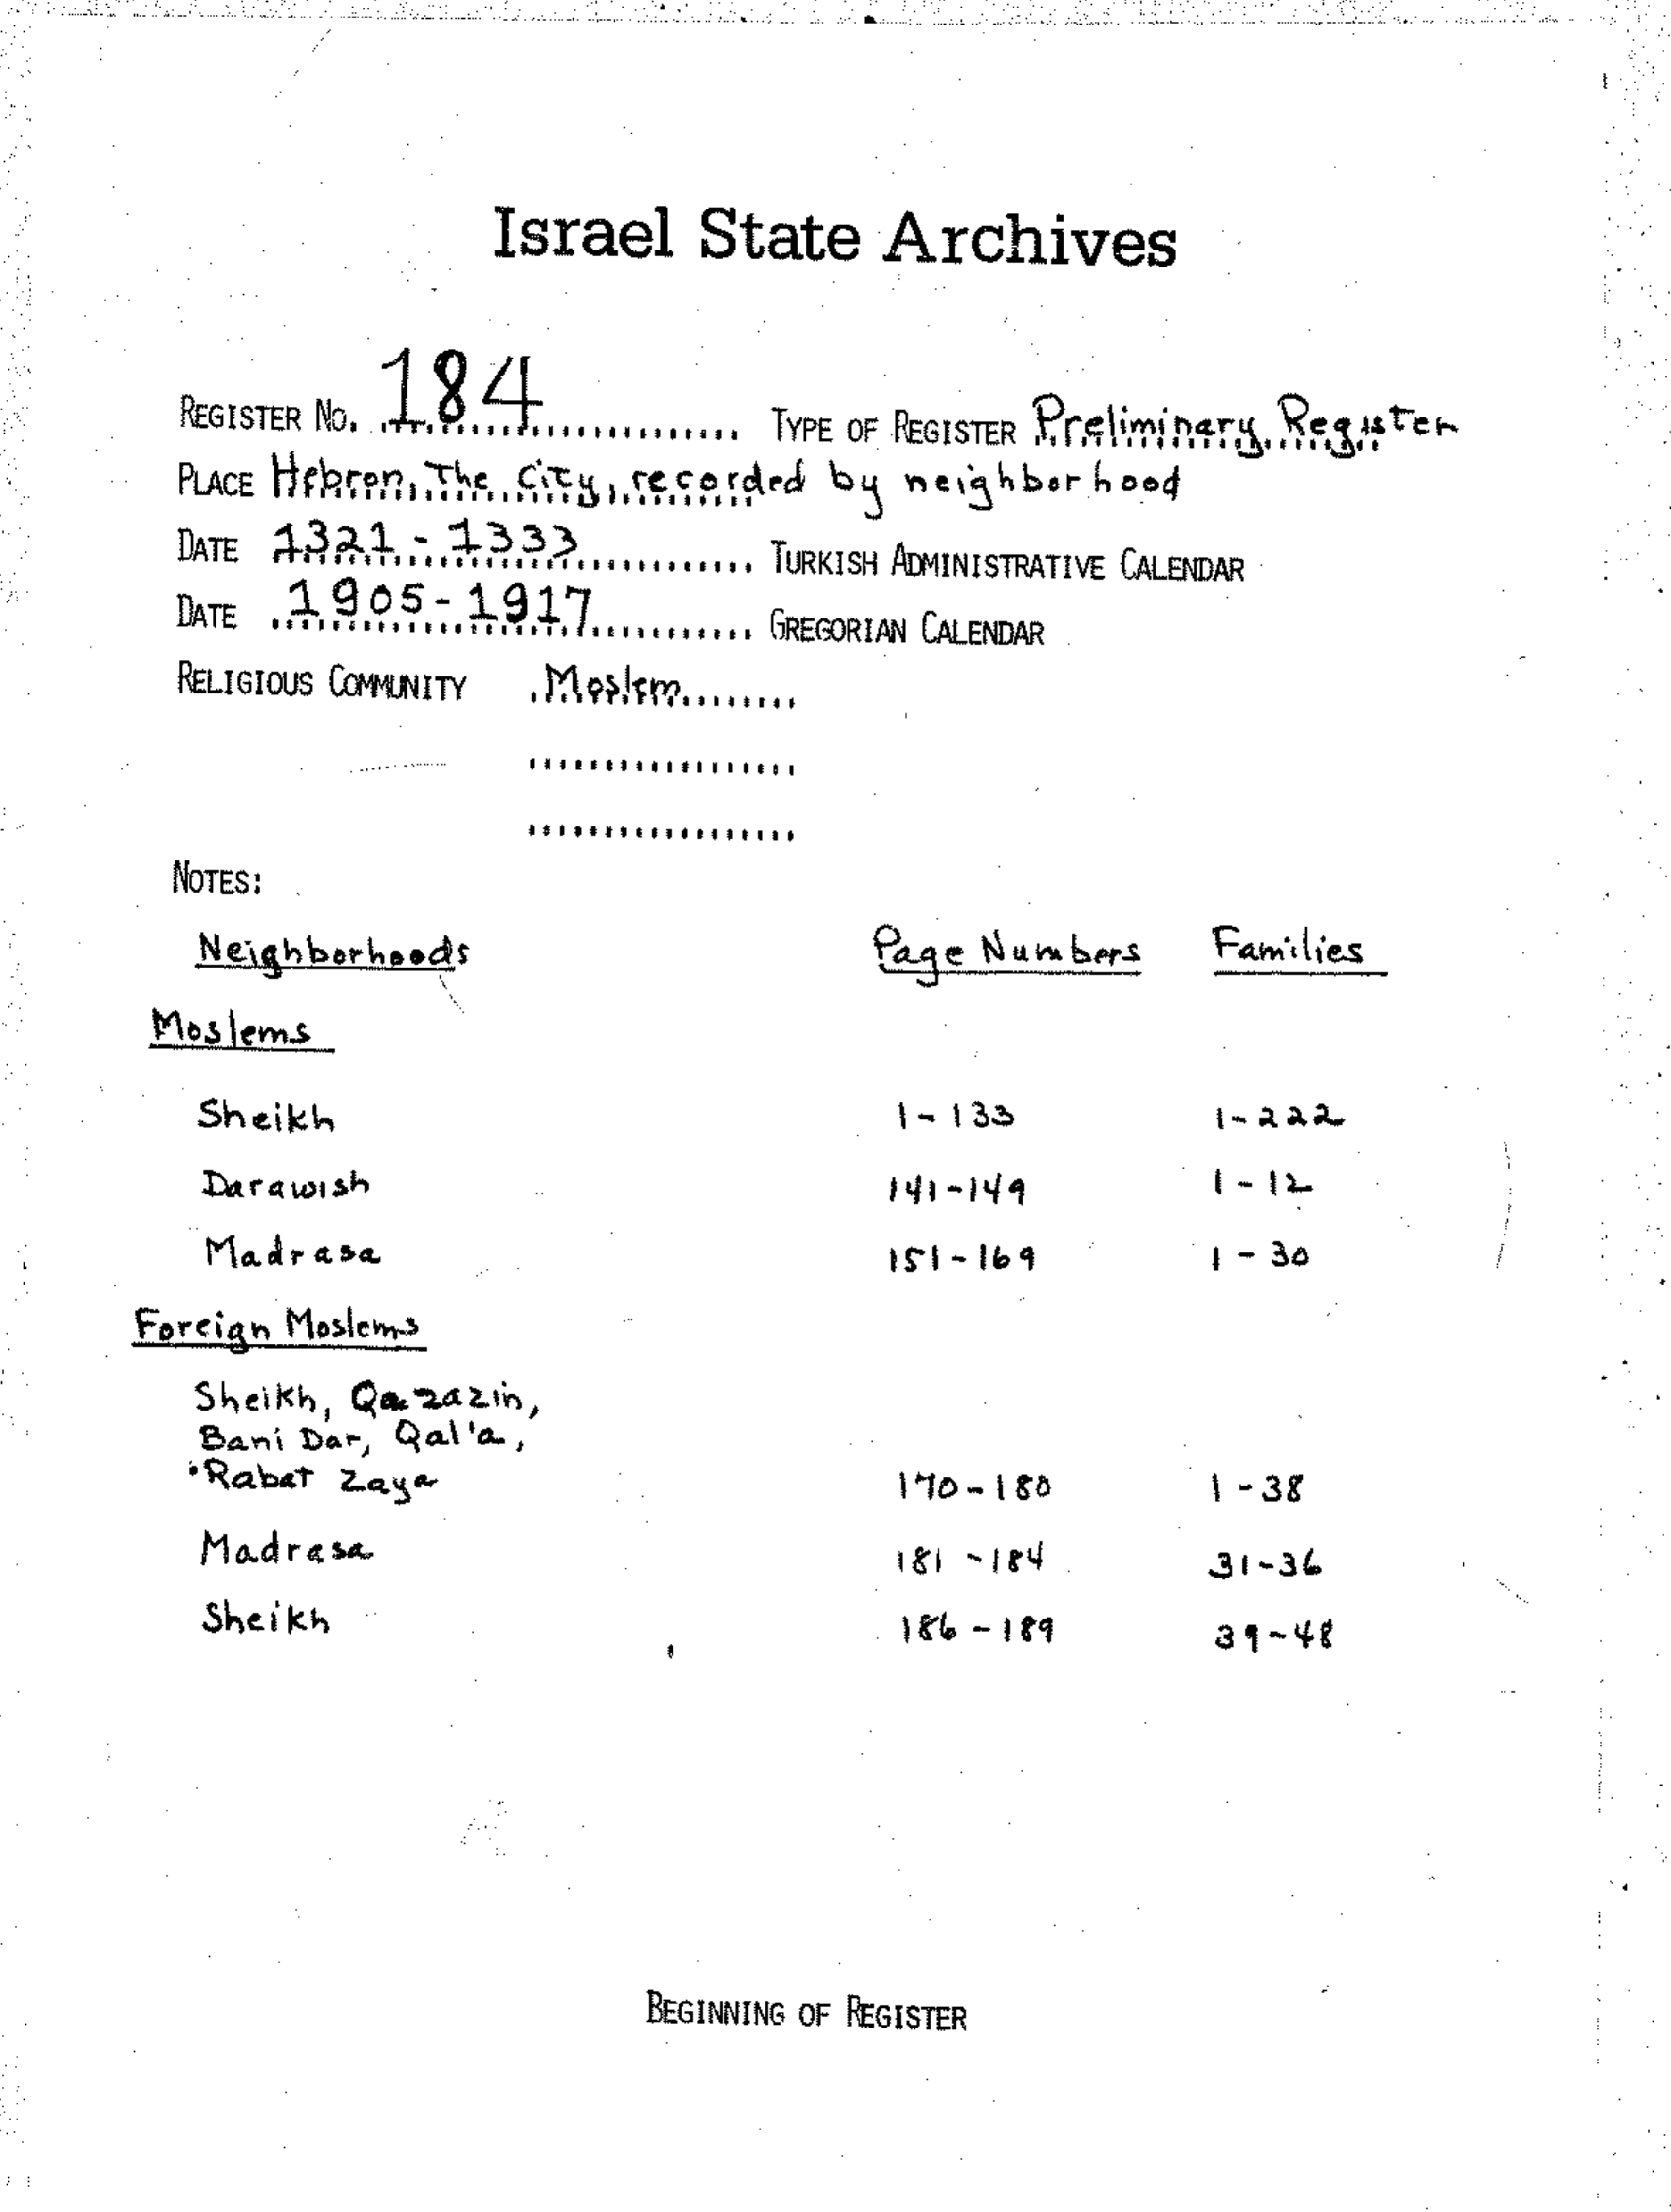 Israel State Archives
REGISTER NO. 184 TYPE OF REGISTER Preliminary Register
PLACE Hebron, The City, recorded by neighborhood
DATE 1321-1333 TURKISH ADMINISTRATIVE CALENDAR
DATE 1905-1917 GREGORIAN CALENDAR
RELIGIOUS COMMUNITY Moslem
NOTES:
Neighborhoods Page Numbers Families
Moslems
Sheikh 1-133 1-222
Darawish 141-149 1-12
Madrasa 151-169 1-30
Foreign Moslems
Sheikh, Qazazin,
Bani Dar, Qal'a,
Rabat Zaya 170-180 1-38
Madrasa 181-184 31-36
Sheikh 186-189 39-48
BEGINNING OF REGISTER